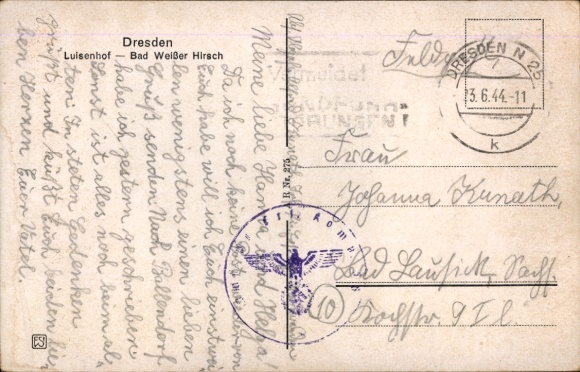 Dresden
Luisenhof — Bad Weißer Hirsch
Meine liebe Hanna und Helga!
Da ich noch keine Post von
Euch habe will ich Euch einstwei
len wenigstens einen lieben
Gruß senden. Nach Ballendorf
habe ich gestern geschrieben.
Sonst ist alles noch beim al-
ten. In steten Gedanken
grüßt und küßt Euch beiden lie
ben Herzen Euer Vatel.
R Nr. 275
Feldpost
DRESDEN N 25
3.6.44.-11
k
Vermeidet
Frau
Johanna Kunath,
Bad Lausick, Sachs.
(10)
Hochstr. 9 I l.